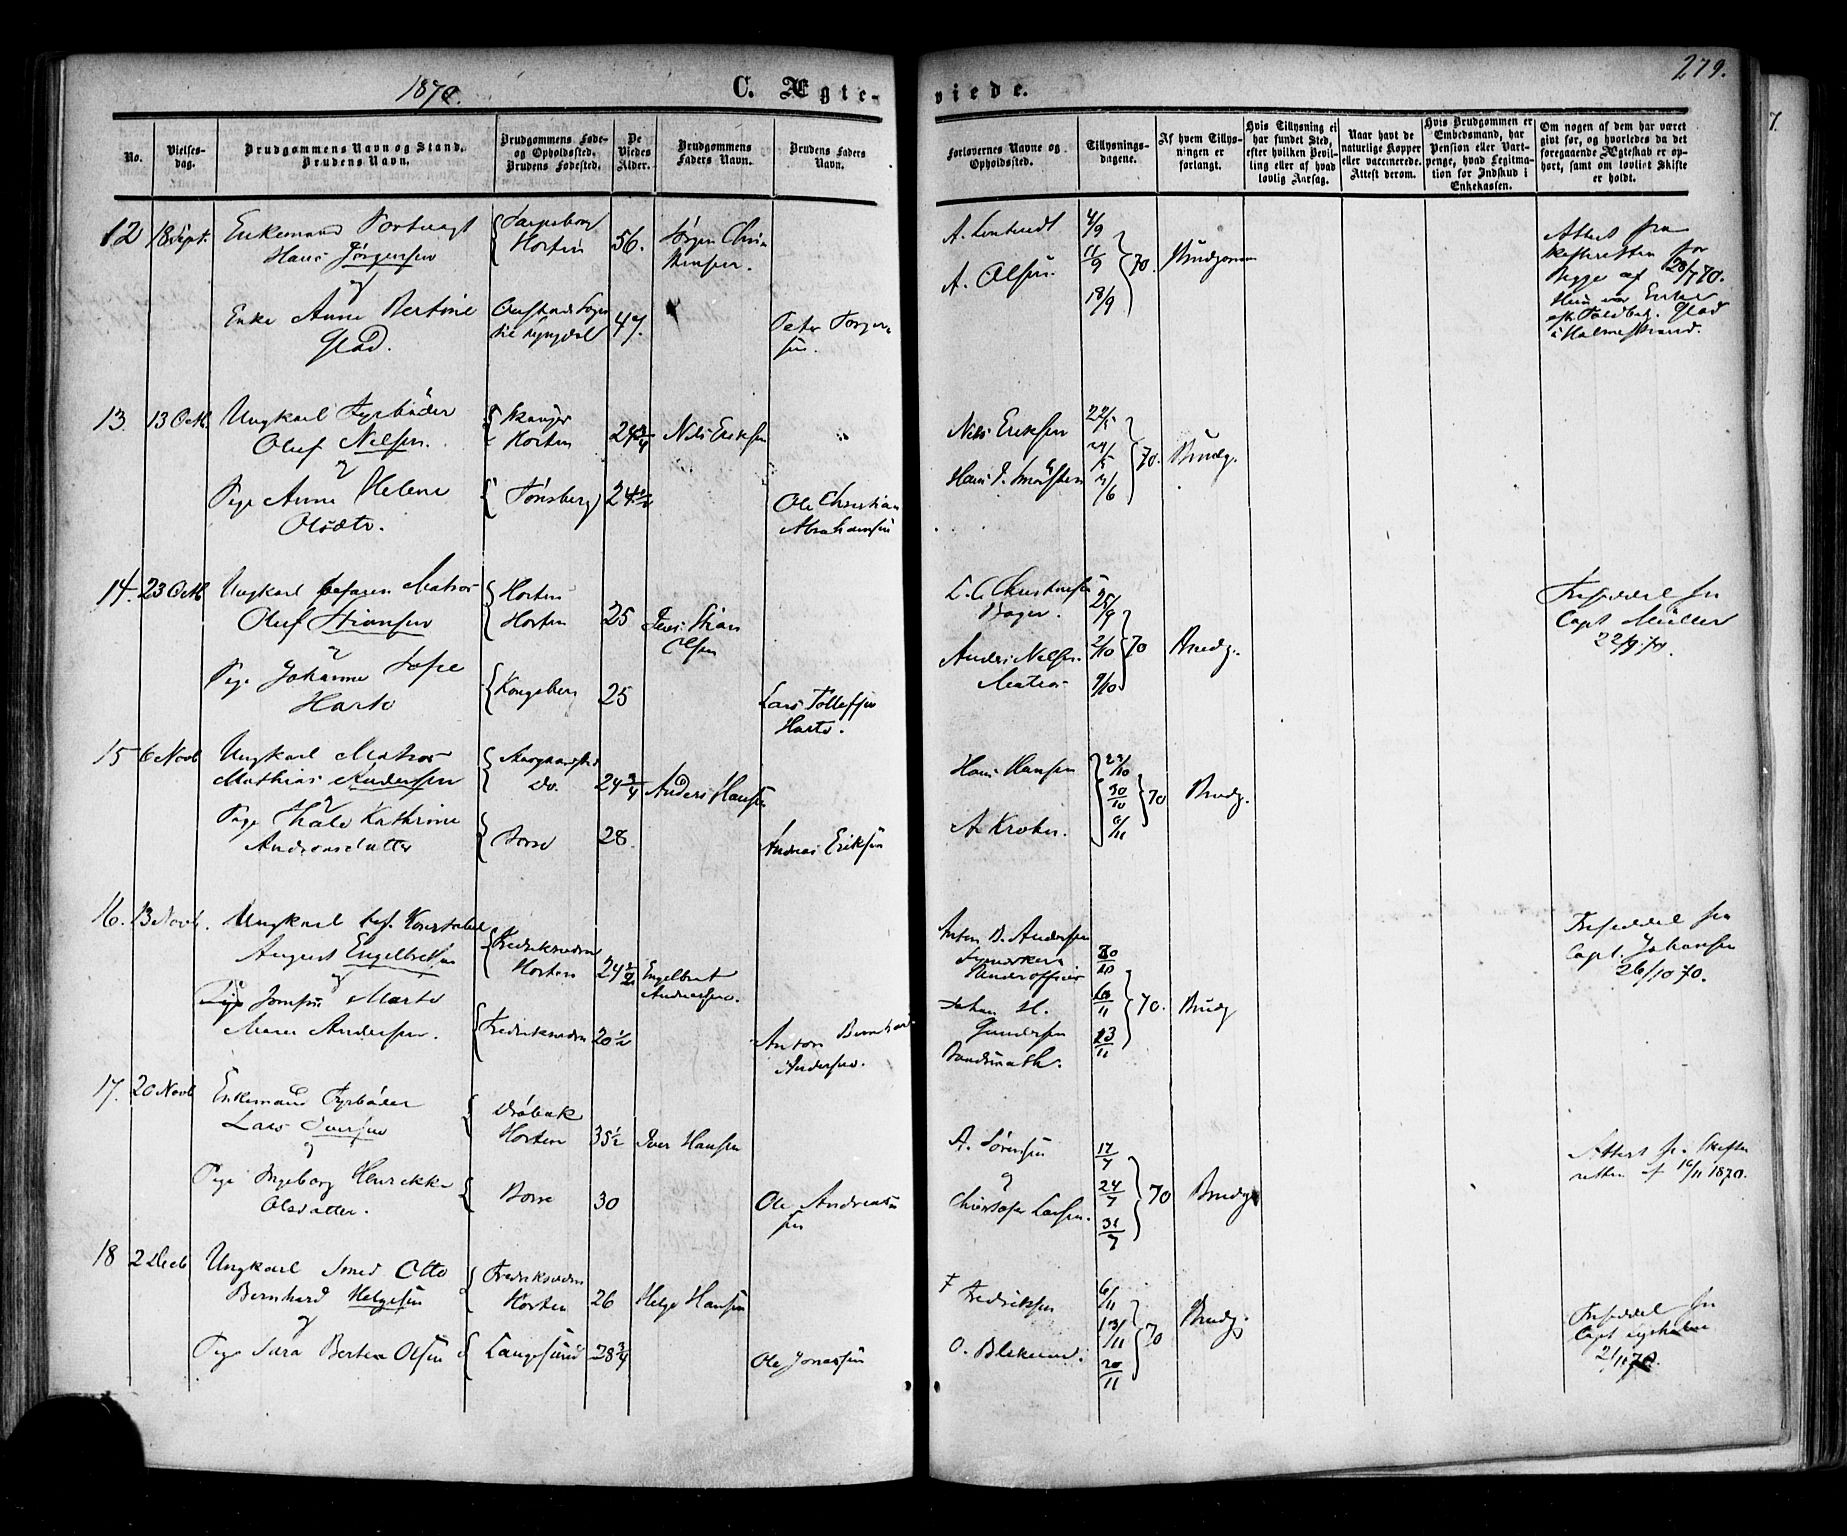 1870.
C. Ægteviede.
279.
No.
Vielsesdag.
Brudgommens Navn og Stand.
Brudens Navn.
Brudgommens Føde-
og Opholdssted.
Brudens Fødested.
De
Viedes
Alder.
Brudgommens
Faders Navn.
Brudens Faders
Navn.
Forlovernes Navne og
Opholdssted.
Tillysnings-
dagene.
Af hvem Tillys-
ningen er
forlangt.
Hvis Tillysning ei
har fundet Sted,
efter hvilken Bevil-
ling eller af hvad
lovlig Aarsag.
Naar havt de
naturlige Kopper
eller vaccinerede.
Attest derom.
Hvis Brudgommen er
Embedsmand, har
Pension eller Vart-
penge, hvad Legitima-
tion for Indskud i
Enkekassen.
Om nogen af dem har været
gift før, og hvorledes da det
foregaaende Ægteskab er op-
hørt, samt om lovligt Skifte
er holdt.
12 18 Sept.
Enkemand
Hans Jørgensen
og
Enke Anne Bertine
Glad.
Horten
56.
47.
Jørgen Chri
stensen.
Peter Torger
sen.
A. Olsen.
4/9
11/9
18/9
70.
Brudgommen
Attest fra
Skifteretten for
Begge af 28/7 70.
Hun var Enke
eft. Toldbetj. Glad
i Holmestrand.
13. 13 Octb.
Ungkarl Fyrbøder
Oluf Nilsen.
og
Pige Anne Helene
Olsdtr.
Horten
Tønsberg
24 3/4
24 1/2
Nils Eriksen
Ole Christian
Abrahamsen
Nils Eriksen
22/5
70.
Brudg.
14. 23 Octb.
Ungkarl befaren Matros
Oluf Stiansen
og
Pige Johanne Sofie
Horten
Horten
Kongsberg
25
25
Jens Stian
Olsen
Lars Tollefsen
C. C. Christensen
Bager.
Anders Nilsen.
Matros
25/9
2/10
9/10
70
Brudg.
Friseddel fra
Capt Müller
22/9.70.
15 6 Novb
Ungkarl Matros
Mathias Andersen
og
Pige Thale Kathrine
Andreasdatter
Do.
Borre
24 3/4
28
Anders Hansen
Andreas Eriksen
Hans Hansen
A Krohn.
23/10
30/10
6/11
70
Brudg.
16. 13 Novb.
Ungkarl bef. Konstabel
August Engelbretsen
og
Pige Jomfru Marte
Maren Andersen.
Fredriksværn
Horten
Fredriksværn
24 1/2
20 1/2
Engelbret
Andreassen.
Anton Bernhard
Andersen.
Anton B. Andersen
Fyrværker
Underofficer
Johan H.
Gundersen
Baadsmath.
30/10
6/11
13/11
70.
Brudg
Friseddel fra
Capt. Johansen
26/10 70.
17. 20 Novb
Enkemand Fyrbøder
Lars Iversen
og
Pige Ingeborg Henrikke
Olsdatter.
Drøbak
Horten
Borre
35 1/2
30
Iver Hansen
Ole Andreas
sen
A. Sørensen
og
Christofer Larsen.
17/7
24/7
31/7
70
Brudg
Attest fr. Skifte
retten af 16/11 1870.
18 2 Decb
Ungkarl Smed Otto
Bernhard Helgesen
og
Pige Sara Bertea Olsen
Fredriksværn
Horten
Langesund
26
28 3/4
Helge Hansen
Ole Jonassen
F Fredriksen
6/11
13/11
20/11
70
Brudg
Friseddel fra
Capt
21/11 70.